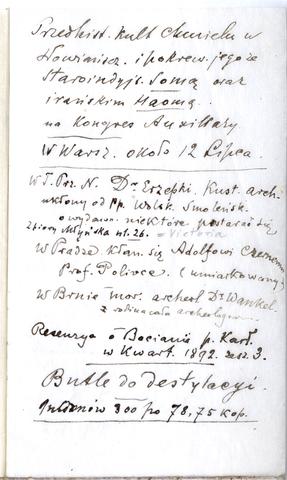 Przedhist. Kult Chmielu w
Słowiańszcz. i pokrew. jego ze
Staroindyjs. Somą oraz
irańskim Haomą.
na Kongres Auxillary
W Warsz. około 12 Lipca.
W T. Prz. N. Dr Erzepki, Kust. arch.
ukłony od pp. Smoleńsk.
o wydawn. niektóre postarać się
Zbiory nr. 26. = Victoria
W Pradze kłan. się Adolfowi Czernemu
Prof. Polivce. (umiarkowany)
W Brnie mor. archeol Dr Wankel.
z archeologiczn.
Recenzya o Bocianie p. Karł.
w Kwart. 1892. zesz. 3.
Butle do destylacyi.
Guldenów 300 po 78,75 kop.